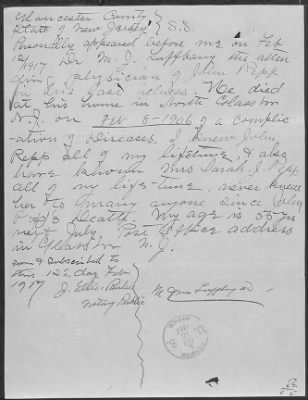 Gloucester County
State of New Jersey } S.S.
Personally appeared before me on Feb
12/1917 Dr M. J. Luffbary the atten
ding physician of John Repp
in his last illness. He died
at his home in North Glassboro
N.J. on Feb 8-1906 of a complic
ation of diseases. I knew John
Repp all of my lifetime, & also
have known Mrs Sarah J. Repp
all of my life-time, never knew
her to marry anyone since John
Repp's Death. My age is 55 yrs
next July. Post Office address
in Glassboro N. J.
Sworn & subscribed to
this 12th day Feb
1917
Notary Public